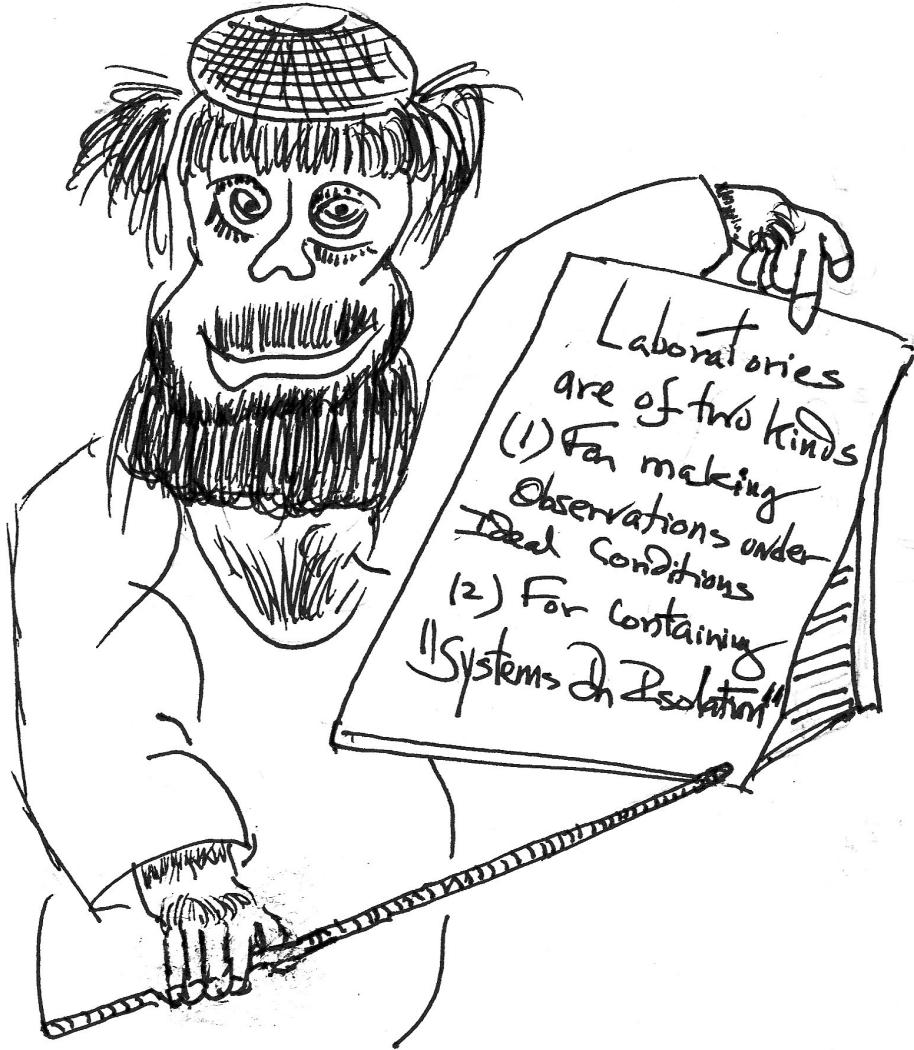 Laboratories
are of two kinds
(1) For making
Observations under
Ideal Conditions
(2) For Containing
"Systems In Isolation"